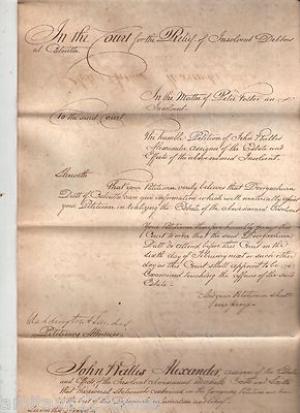 In the Court for the Relief of Insolvent Debtors
at Calcutta
In the Matter of Peter Foster an
Insolvent.
To the said Court
The humble Petition of John Wallis
Alexander assignee of the Estate and
Effects of the abovenamed Insolvent.
Sheweth
That your Petitioner verily believes that
Dutt of Calcutta can give information which will materially assist
your Petitioner in realizing the Estate of the abovenamed Insolvent
Your Petitioner therefore humbly prays this
Court to order that the said
Dutt do attend before this Court on the
sixth day of February next or such other
day as this Court shall appoint to be
Examined touching the affairs of the said
Estate.
And your Petitioner shall
ever pray
Petitioners Attornies
John Wallis Alexander, assignee of the Estate
and Effects of the Insolvent abovenamed maketh Oath and Saith
that the several Statements contained in the foregoing Petition are true
to the best of this Deponents information and belief